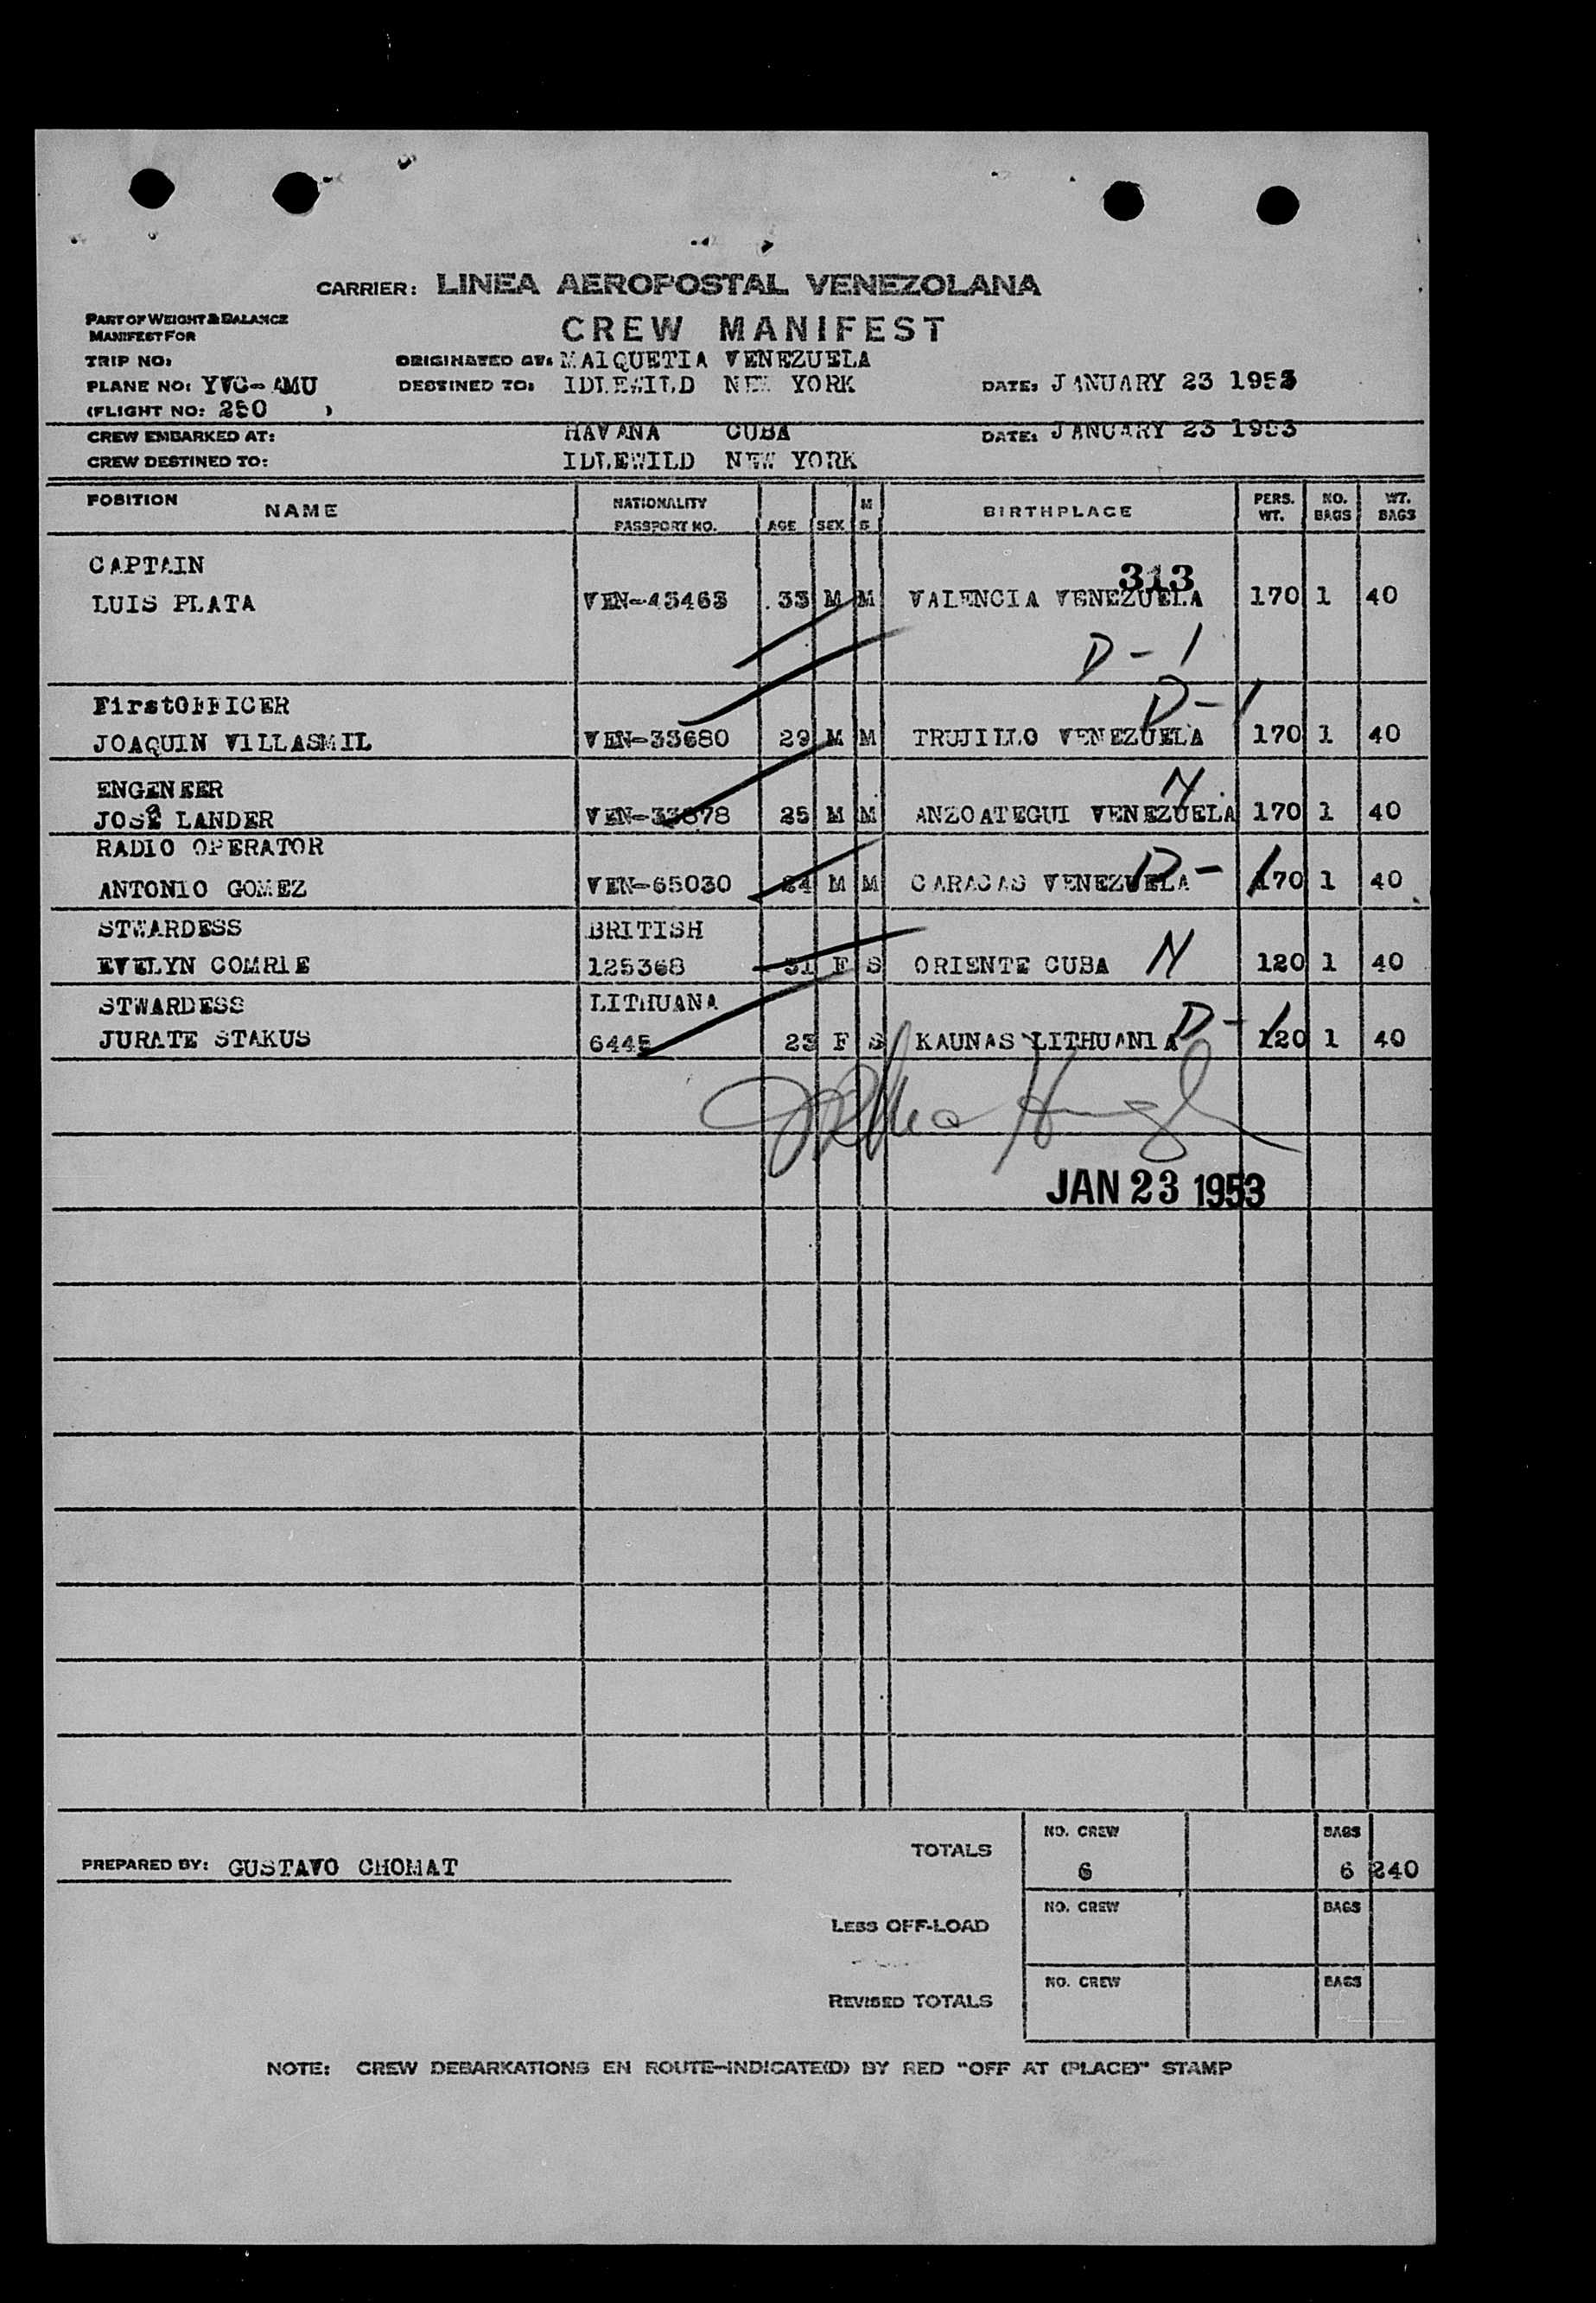 CARRIER: LINEA AEROPOSTAL VENEZOLANA
PART OF WEIGHT & BALANCE
MANIFEST FOR
CREW MANIFEST
TRIP NO: ORIGINATED AT: MAIQUETIA VENEZUELA
PLANE NO: YVC-AMU DESTINED TO: IDLEWILD NEW YORK DATE: JANUARY 23 1953
(FLIGHT NO: 250 )
CREW EMBARKED AT: HAVANA CUBA DATE: JANUARY 23 1953
CREW DESTINED TO: IDLEWILD NEW YORK
POSITION NAME NATIONALITY PASSPORT NO. AGE SEX M S BIRTHPLACE PERS. WT. NO. BAGS WT. BAGS
CAPTAIN 313
LUIS PLATA VEN-43463 33 M M VALENCIA VENEZUELA 170 1 40
D-1
FirstOFFICER D-1
JOAQUIN VILLASMIL VEN-33680 29 M M TRUJILLO VENEZUELA 170 1 40
ENGENEER N
JOSE LANDER VEN-33878 25 M M ANZOATEGUI VENEZUELA 170 1 40
RADIO OPERATOR
ANTONIO GOMEZ VEN-65030 24 M M CARACAS VENEZUELA D-1 170 1 40
STWARDESS BRITISH
EVELYN COMRIE 125368 31 F S ORIENTE CUBA N 120 1 40
STWARDESS LITHUANA
JURATE STAKUS 6445 23 F S KAUNAS LITHUANIA D-1 120 1 40
JAN 23 1953
TOTALS NO. CREW 6 BAGS 6 240
PREPARED BY: GUSTAVO CHOMAT
LESS OFF-LOAD NO. CREW BAGS
REVISED TOTALS NO. CREW BAGS
NOTE: CREW DEBARKATIONS EN ROUTE-INDICATE(D) BY RED "OFF AT (PLACE)" STAMP